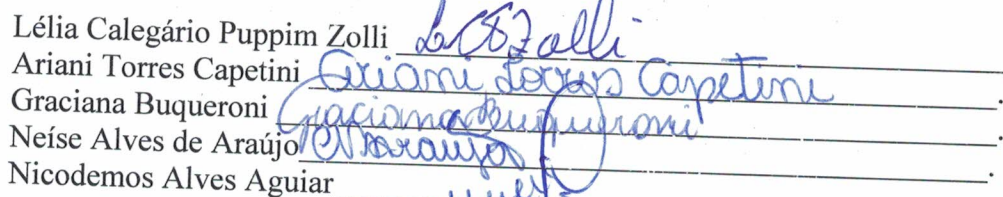 Lélia Calegário Puppim Zolli LCPZolli
Ariani Torres Capetini Ariani Torres Capetini.
Graciana Buqueroni Graciana Buqueroni.
Neíse Alves de Araújo NAaraujo.
Nicodemos Alves Aguiar